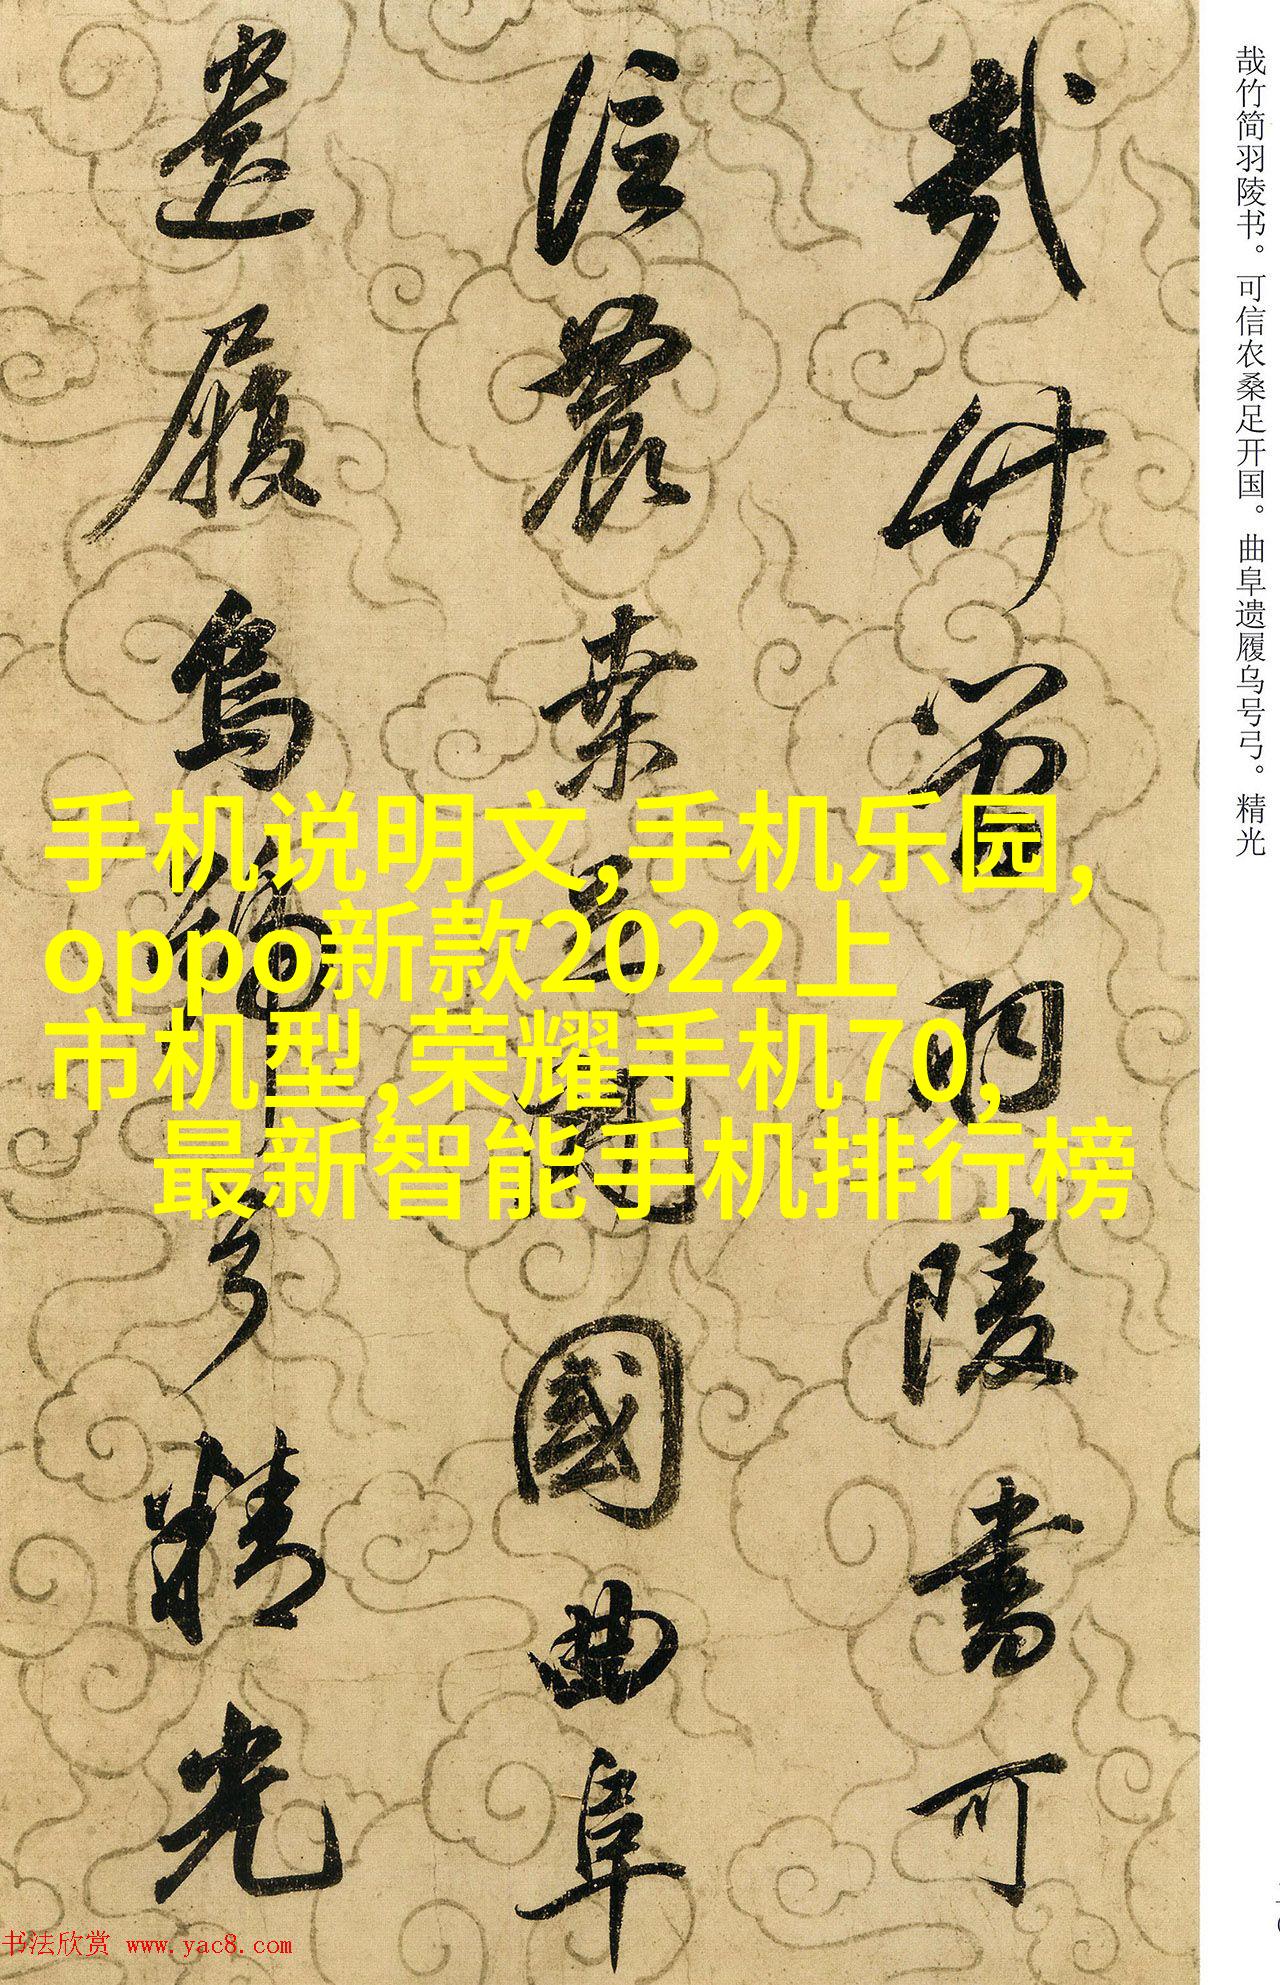 哉竹简羽陵书可
信農桒足開國曲阜
遗履烏號弓精光
哉竹简羽陵书。可信农桑足开国。曲阜遗履乌号弓。精光
手机说明文,手机乐园,
oppo新款2022上
市机型,荣耀手机70,
最新智能手机排行榜
书法欣赏 www.yac8.com